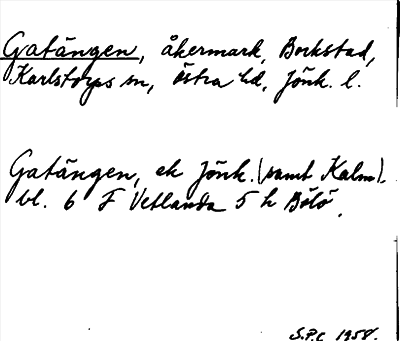 Gatängen, åkermark, Bockstad,
Karlstorps sn, Östra hd, Jönk. l.
Gatängen, ek Jönk. (samt Kalm).
bl. 6 F Vetlanda 5 h Bölö.
S.P.C 1958.